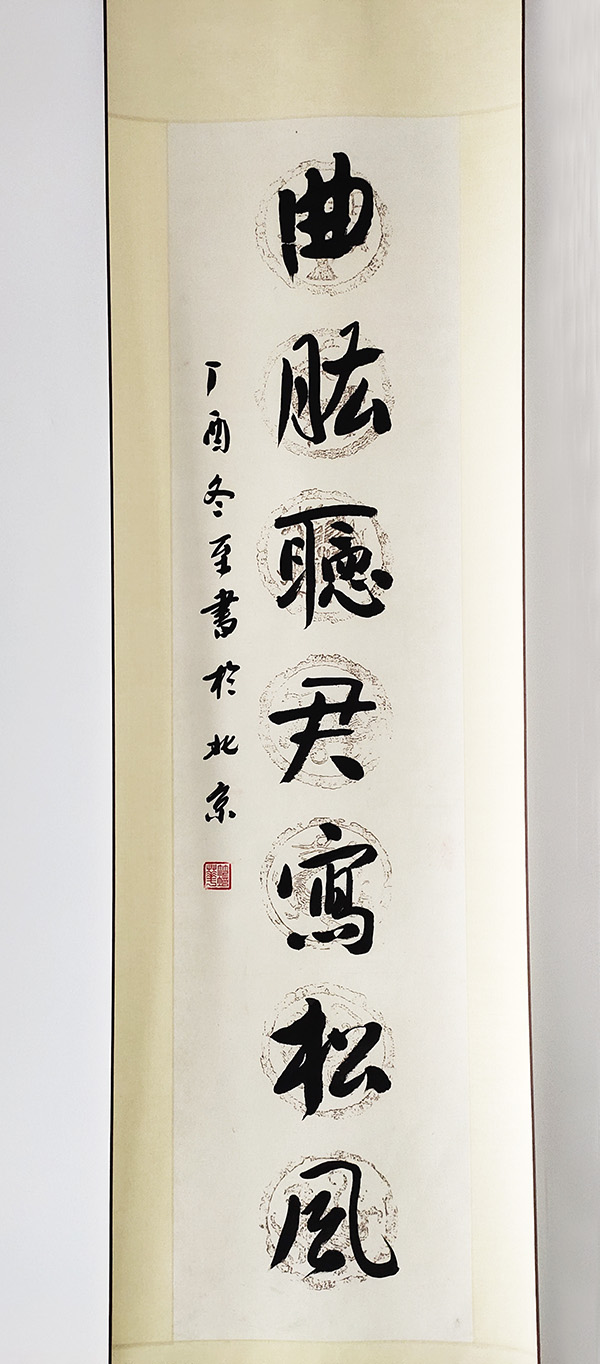 曲肱聽君寫松風
丁酉冬至書於北京